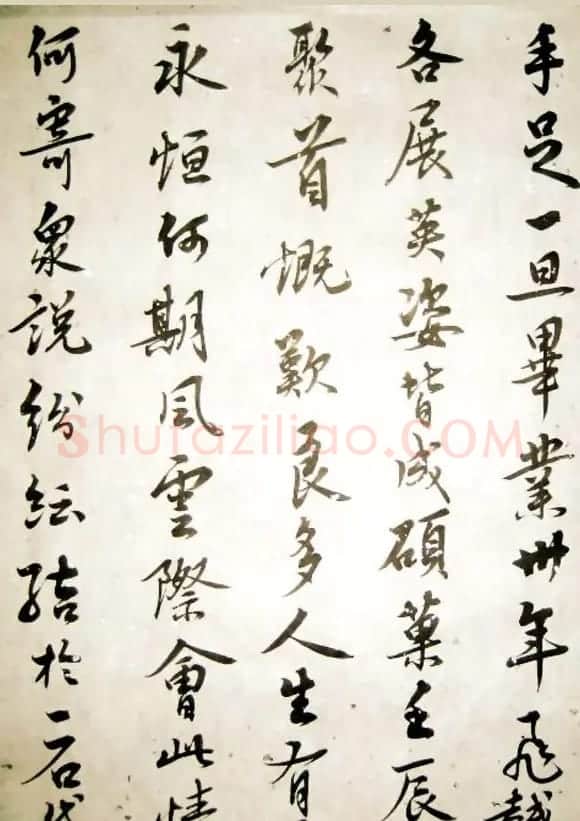 手足一旦畢業卅年飛越
各展英姿皆成碩菓壬辰
聚首慨歎良多人生有
永恒何期風雲際會此情
何寄衆說紛紜結於一石
Shufaziliao.COM